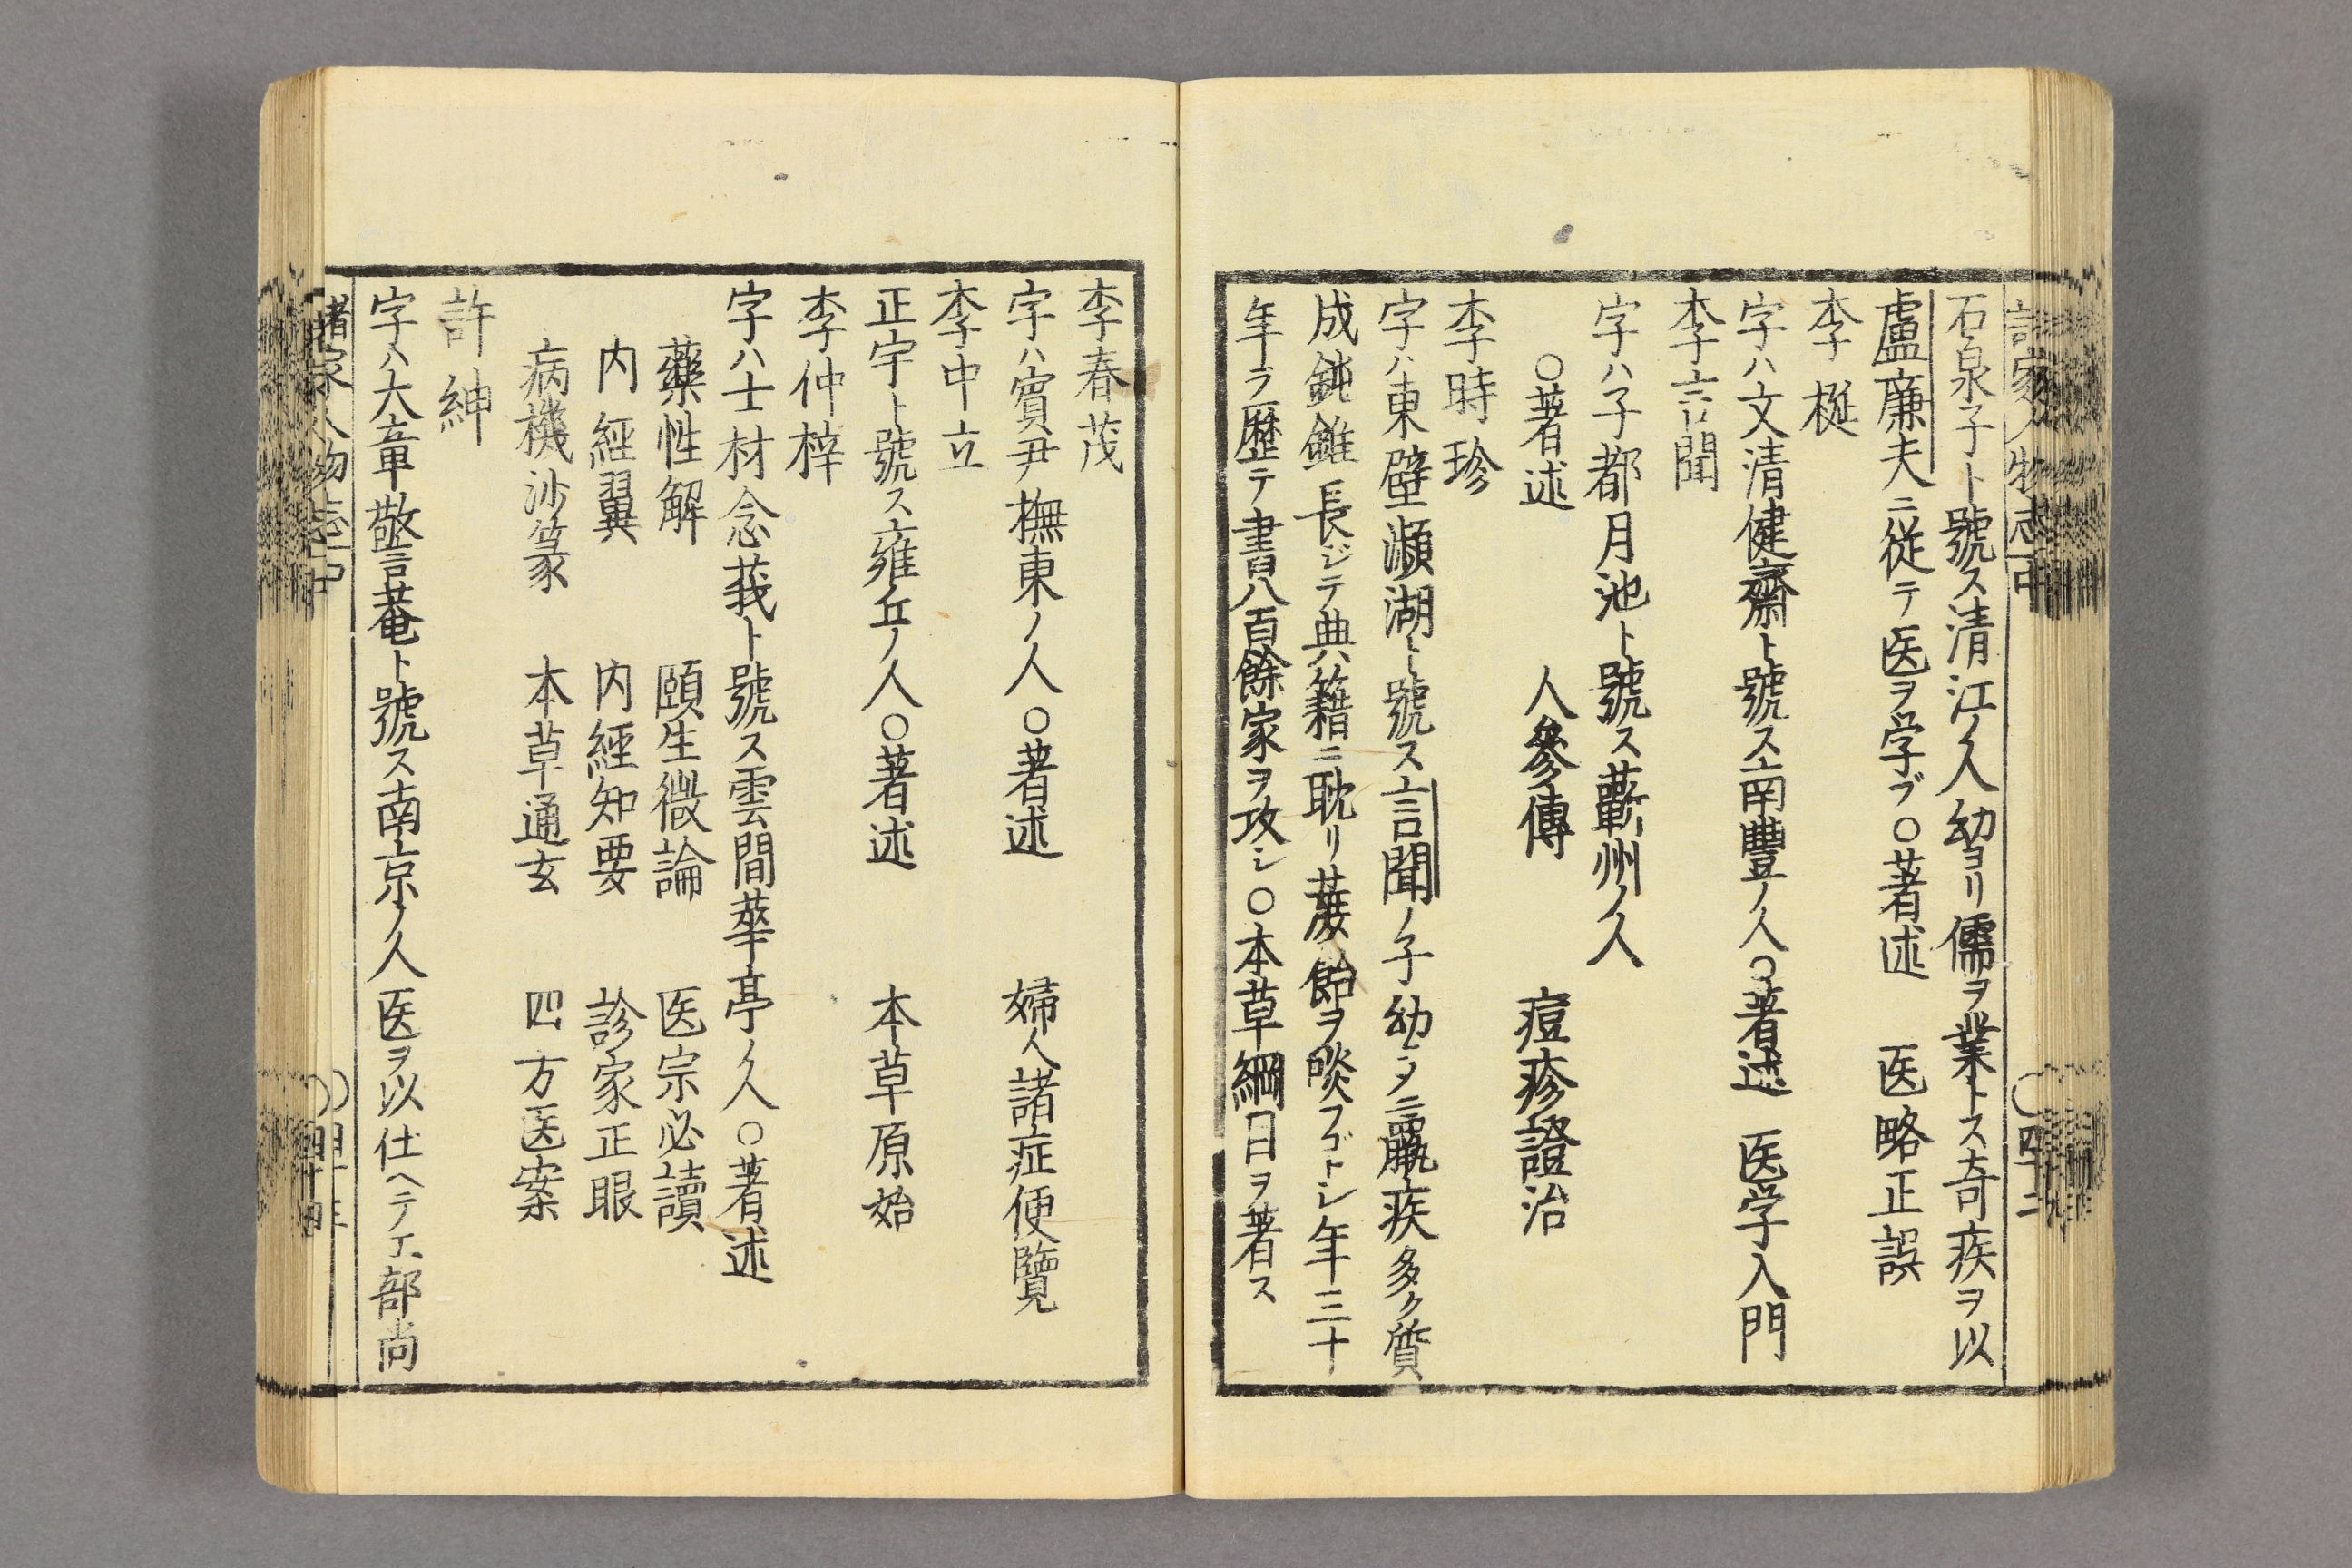 石泉子ト號ス清江ノ人幼ヨリ儒ヲ業トス奇疾ヲ以
盧廉夫ニ従テ医ヲ学ブ○著述　医略正誤
李梴
字ハ文清健齋ト號ス南豐ノ人○著述　医学入門
李言聞
字ハ子都月池ト號ス蘄州ノ人
○著述　人參傳　痘疹證治
李時珍
字ハ東壁瀕湖ト號ス言聞ノ子幼ニシテ羸疾多ク質
成鈍錐長ジテ典籍ニ耽リ蔗飴ヲ啖フゴトシ年三十
年ヲ歴テ書八百餘家ヲ攻シ○本草綱目ヲ著ス
李春茂
字ハ賓尹撫東ノ人○著述　婦人諸症便覽
李中立
正宇ト號ス雍丘ノ人○著述　本草原始
李仲梓
字ハ士材念莪ト號ス雲間華亭ノ人○著述
藥性解　頤生微論　医宗必讀
内經翼　内經知要　診家正眼
病機沙篆　本草通玄　四方医案
許紳
字ハ大章警菴ト號ス南京ノ人医ヲ以仕ヘテ工部尚
諸家人物志中